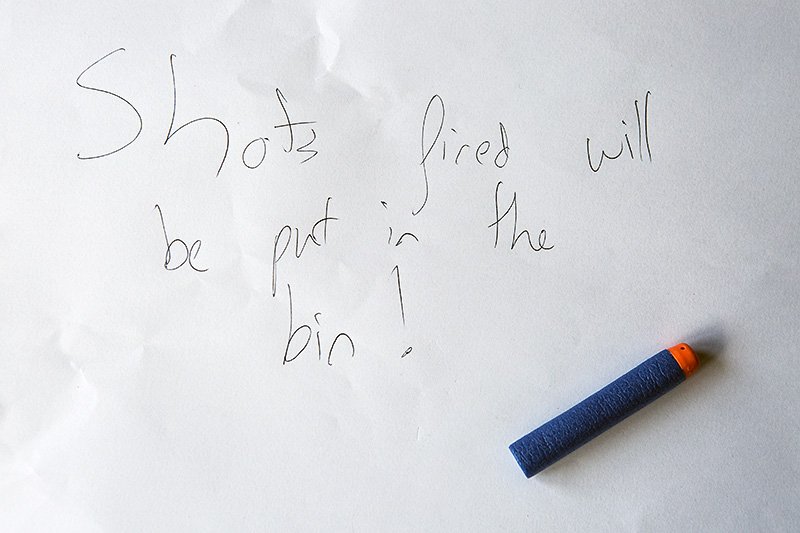 Shots fired will
be put in the
bin!